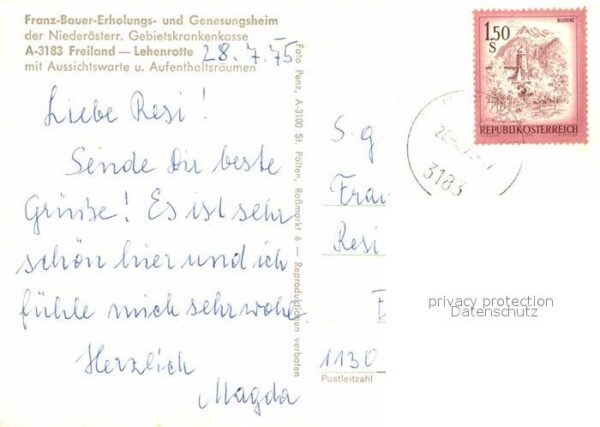 Franz-Bauer-Erholungs- und Genesungsheim
der Niederösterr. Gebietskrankenkasse
A-3183 Freiland — Lehenrotte
mit Aussichtswarte u. Aufenthaltsräumen
28.7.75
Liebe Resi!
Sende Dir beste
Grüße! Es ist sehr
schön hier und ich
fühle mich sehr wohl.
Herzlich
Magda
Foto Penz, A-3100 St. Pölten, Roßmarkt 6 — Reproduktionen verboten
1.50
S
BLUDENZ
REPUBLIK ÖSTERREICH
3183
S.g.
Frau
Resi
1130
Postleitzahl
privacy protection
Datenschutz